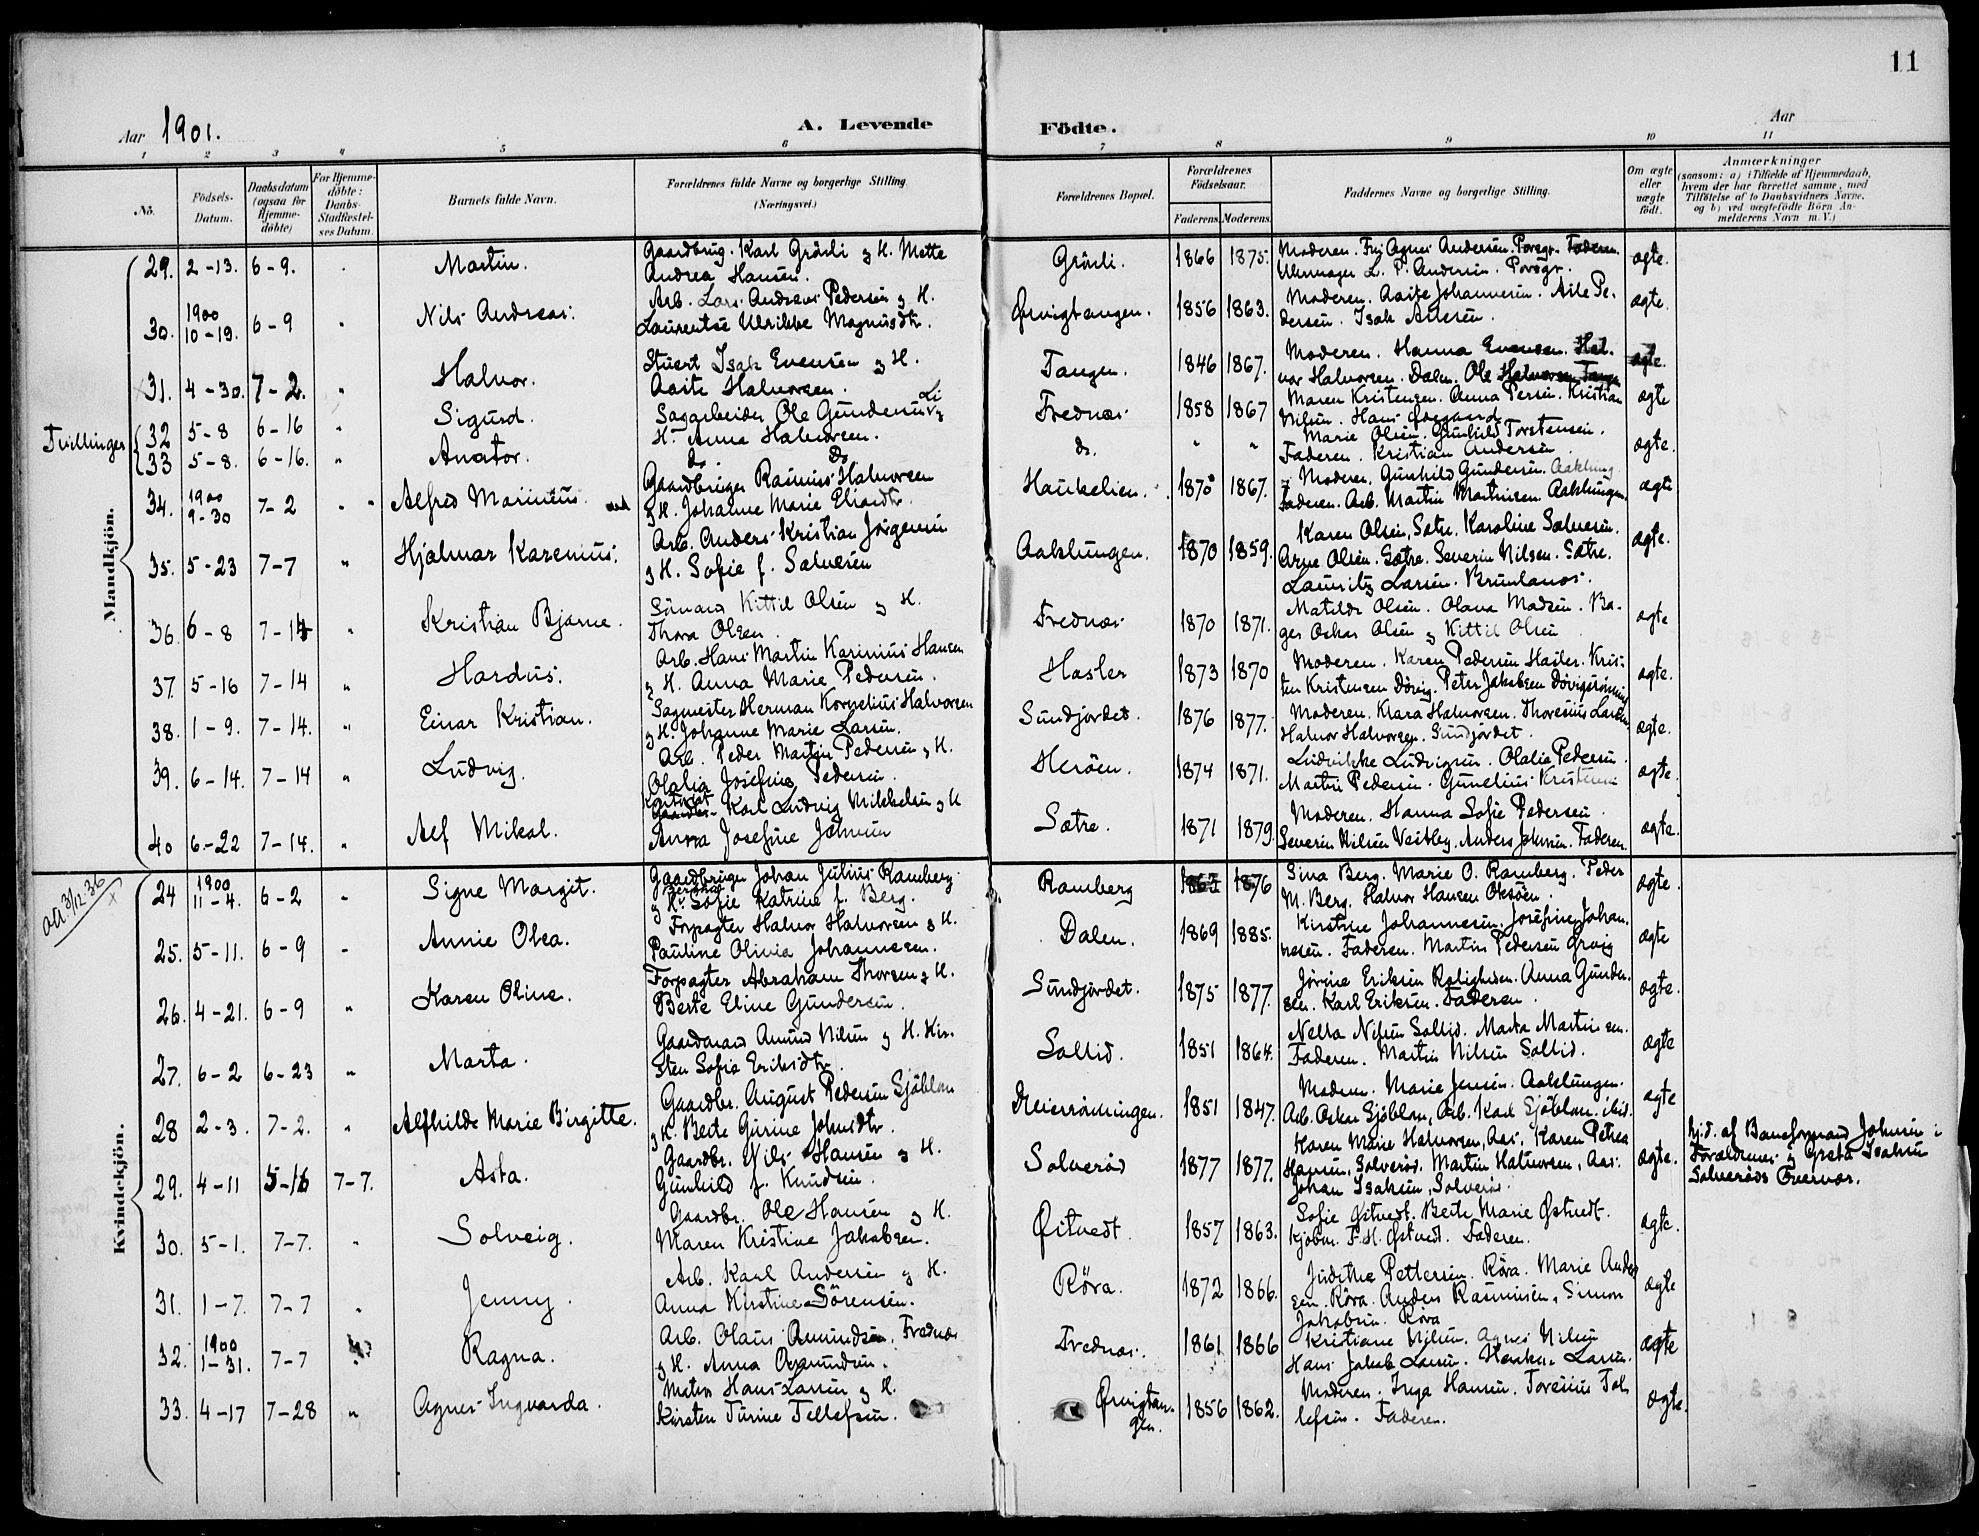 11
Aar 1901.
A. Levende Födte.
Aar
1 2 3 4 5 6 7 8 9 10 11
No.
Födsels-Datum.
Daabsdatum (ogsaa for Hjemme-döbte)
For Hjemme-döbte: Daabs-Stadfæstel-ses Datum.
Barnets fulde Navn.
Forældrenes fulde Navne og borgerlige Stilling (Næringsvei.)
Forældrenes Bopæl.
Forældrenes Födselsaar.
Faderens. Moderens.
Faddernes Navne og borgerlige Stilling.
Om ægte eller uægte födt.
Anmærkninger
(saasom: a) i Tilfælde af Hjemmedaab, hvem der har forrettet samme, med Tilföielse af to Daabsvidners Navne, og b) ved uægtefödte Börn An-melderens Navn m. V.)
Mandkjön.
29. 2-13. 6-9. Martin. Gaardbrug. Karl Gråsli g H. Mette
Andrea Hansen. Gråsli. 1866 1875. Moderen. Frk Agnes Andersen. Porsgr. Faderen.
Uhrmager L. P. Andersen. Porsgr. ægte.
30. 1900 10-19. 6-9 " Nils Andreas. Arb. Lars Andreas Pedersen g H.
Laurentse Ulrikke Magnusdtr. Ørvigtangen. 1856 1863. Moderen. Aaste Johannesen. Asle Pe-
dersen. Isak Allesen. ægte.
31. 4-30. 7-2. " Halvor. Stuert Isak Evensen g H.
Aaste Halvorsen. Tangen. 1846 1867. Moderen. Hanna Evensen. Hal-
vor Halvorsen. Dalen. Ole Halvorsen Tangen ægte.
Tvillinger
32 5-8 6-16 " Sigurd. Sagarbeider Ole Gundersen Li g
H. Anna Halvorsen. Frednæs 1858 1867 Maren Kristensen. Anna Persen. Kristian
Nilsen. Hans ægte
33 5-8. 6-16. " Anator. do. Do do. " " Marie Olsen. Gunhild Torstensen.
Faderen. Kristian Andersen ægte.
34. 1900 9-30 7-2 " Alfred Marinius. Gaardbruger Rasmus Halvorsen
g H. Johanne Marie Eliasdtr. Haukelien. 1870 1867. Moderen. Gunhild Gundersen. Aaklung.
Faderen. Arb. Martin Martinsen. Aaklungen. ægte
35. 5-23 7-7 " Hjalmar Karenius. Arb. Anders Kristian Jörgensen
g H. Sofie f. Salvesen Aaklungen. 1870 1859. Karen Olsen, Sætre. Karoline Salvesen.
Arne Olsen. Sætre. Severin Nilsen. Sætre.
Lauritz Larsen. Brunlanæs. ægte.
36. 6-8 7-14 " Kristian Bjarne. Sömand Kittil Olsen g H.
Thora Olsen. Frednæs 1870 1871. Matilde Olsen. Olava Madsen. Ba-
ger Oskar Olsen g Kittil Olsen ægte
37. 5-16 7-14 " Hardus. Arb. Hans Martin Karinius Hansen
g H. Anna Marie Pedersen. Hasler 1873 1870 Moderen. Karen Pedersen Hasler. Kris-
ten Kristensen Dövig. Peter Jakobsen ægte.
38. 1-9. 7-14. " Einar Kristian. Sagmester Herman Kornelius Halvorsen
g H. Johanne Marie Larsen. Sundjordet. 1876 1877. Moderen. Klara Halvorsen. Thoresius Larsen
Halvor Halvorsen. Sundjordet. ægte.
39. 6-14. 7-14 " Ludvig. Arb. Peder Martin Pedersen g H.
Olalia Josefine Pedersen. Herøen. 1874 1871. Ludvikke Ludvigsen. Olalia Pedersen.
Martin Pedersen. Gunelius Kristensen ægte.
40 6-22 7-14. " Alf Mikal. Karl Ludvig Mikkelsen g H
Anna Josefine Johnsen Sætre. 1871 1879. Moderen. Hanna Sofie Pedersen
Severin Nilsen Veidby. Anders Johnsen. Faderen. ægte.
Kvindekjön.
oa 3/12 36
24 1900 11-4. 6-2 " Signe Margit. Gaardbruger Johan Julius Ramberg
g H. Sofie Katrine f. Berg. Ramberg 1863 1876 Sina Berg. Marie O. Ramberg. Peder
M. Berg. Halvor Hansen Oksøen. ægte.
25. 5-11. 6-9 " Annie Olea. Forpagter Halvor Halvorsen g H.
Pauline Olivia Johannesen. Dalen. 1869 1885. Kirstine Johannesen. Josefine Johan-
nesen. Faderen. Martin Pedersen Ørvig ægte
26. 4-21. 6-9 " Karen Oline. Forpagter Abraham Thorsen g H.
Berte Eline Gundersen. Sundjordet. 1875 1877. Jørine Eriksen Roligheden. Anna Gunder-
sen. Karl Eriksen. Faderen. ægte.
27. 6-2 6-23 " Marta. Gaardmand Amund Nilsen g H. Kir-
sten Sofia Eriksdtr. Sollid. 1851 1864. Nella Nilsen Sollid. Marta Martinsen.
Faderen. Martin Nilsen Sollid. ægte
28 2-3. 7-2. " Alfhilde Marie Birgitte. Gaardbr. August Pedersen Sjöblom
g H. Berte Gurine Johnsdtr. Meierrödningen. 1851 1847. Moderen. Marie Jensen. Aaklungen.
Arb. Oskar Sjöblom, Arb. Karl Sjöblom. ibid. ægte
29. 4-11 5-16 7-7. Asta. Gaardbr. Nils Hansen g H.
Gunhild f. Knudsen. Solverød 1877 1877. Karen Marie Halvorsen, Aas. Karen Petrea
Hansen, Solverød. Martin Halvorsen, Aas.
Johan Isaksen, Solverød. ægte. hj.d. af Baneformand Johnsen i
Forældrenes g Greta Isaksen
Solverøds Overvær.
30. 5-1. 7-7. " Solveig. Gaardbr. Ole Hansen g H.
Maren Kristine Jakobsen. Østvedt. 1857 1863. Sofie Østvedt. Berte Marie Østvedt.
Kjöbm. F. H. Østvedt. Faderen. ægte.
31. 1-7. 7-7 " Jenny. Arb. Karl Andersen g H.
Anna Kirstine Sörensen. Röra. 1872 1866. Judithe Pettersen. Röra. Marie Ander-
sen. Röra. Anders Rasmussen, Simon
Jakobsen. Röra ægte
32. 1900 1-31. 7-7 Ragna. Arb. Olaus Amundsen. Frednæs
g H. Anna Osmundsen. Frednæs. 1861 1866 Kristiane Nilsen. Agnes Nilsen
Hans Jakob Larsen. Larsen. ægte
33. 4-17 7-28 " Agnes Ingvarda. Matros Hans Larsen g H.
Kirsten Turine Tellefsen. Ørvigtan-
gen. 1856 1862. Moderen. Inga Hansen. Toresius Tol-
lefsen. Faderen. ægte.